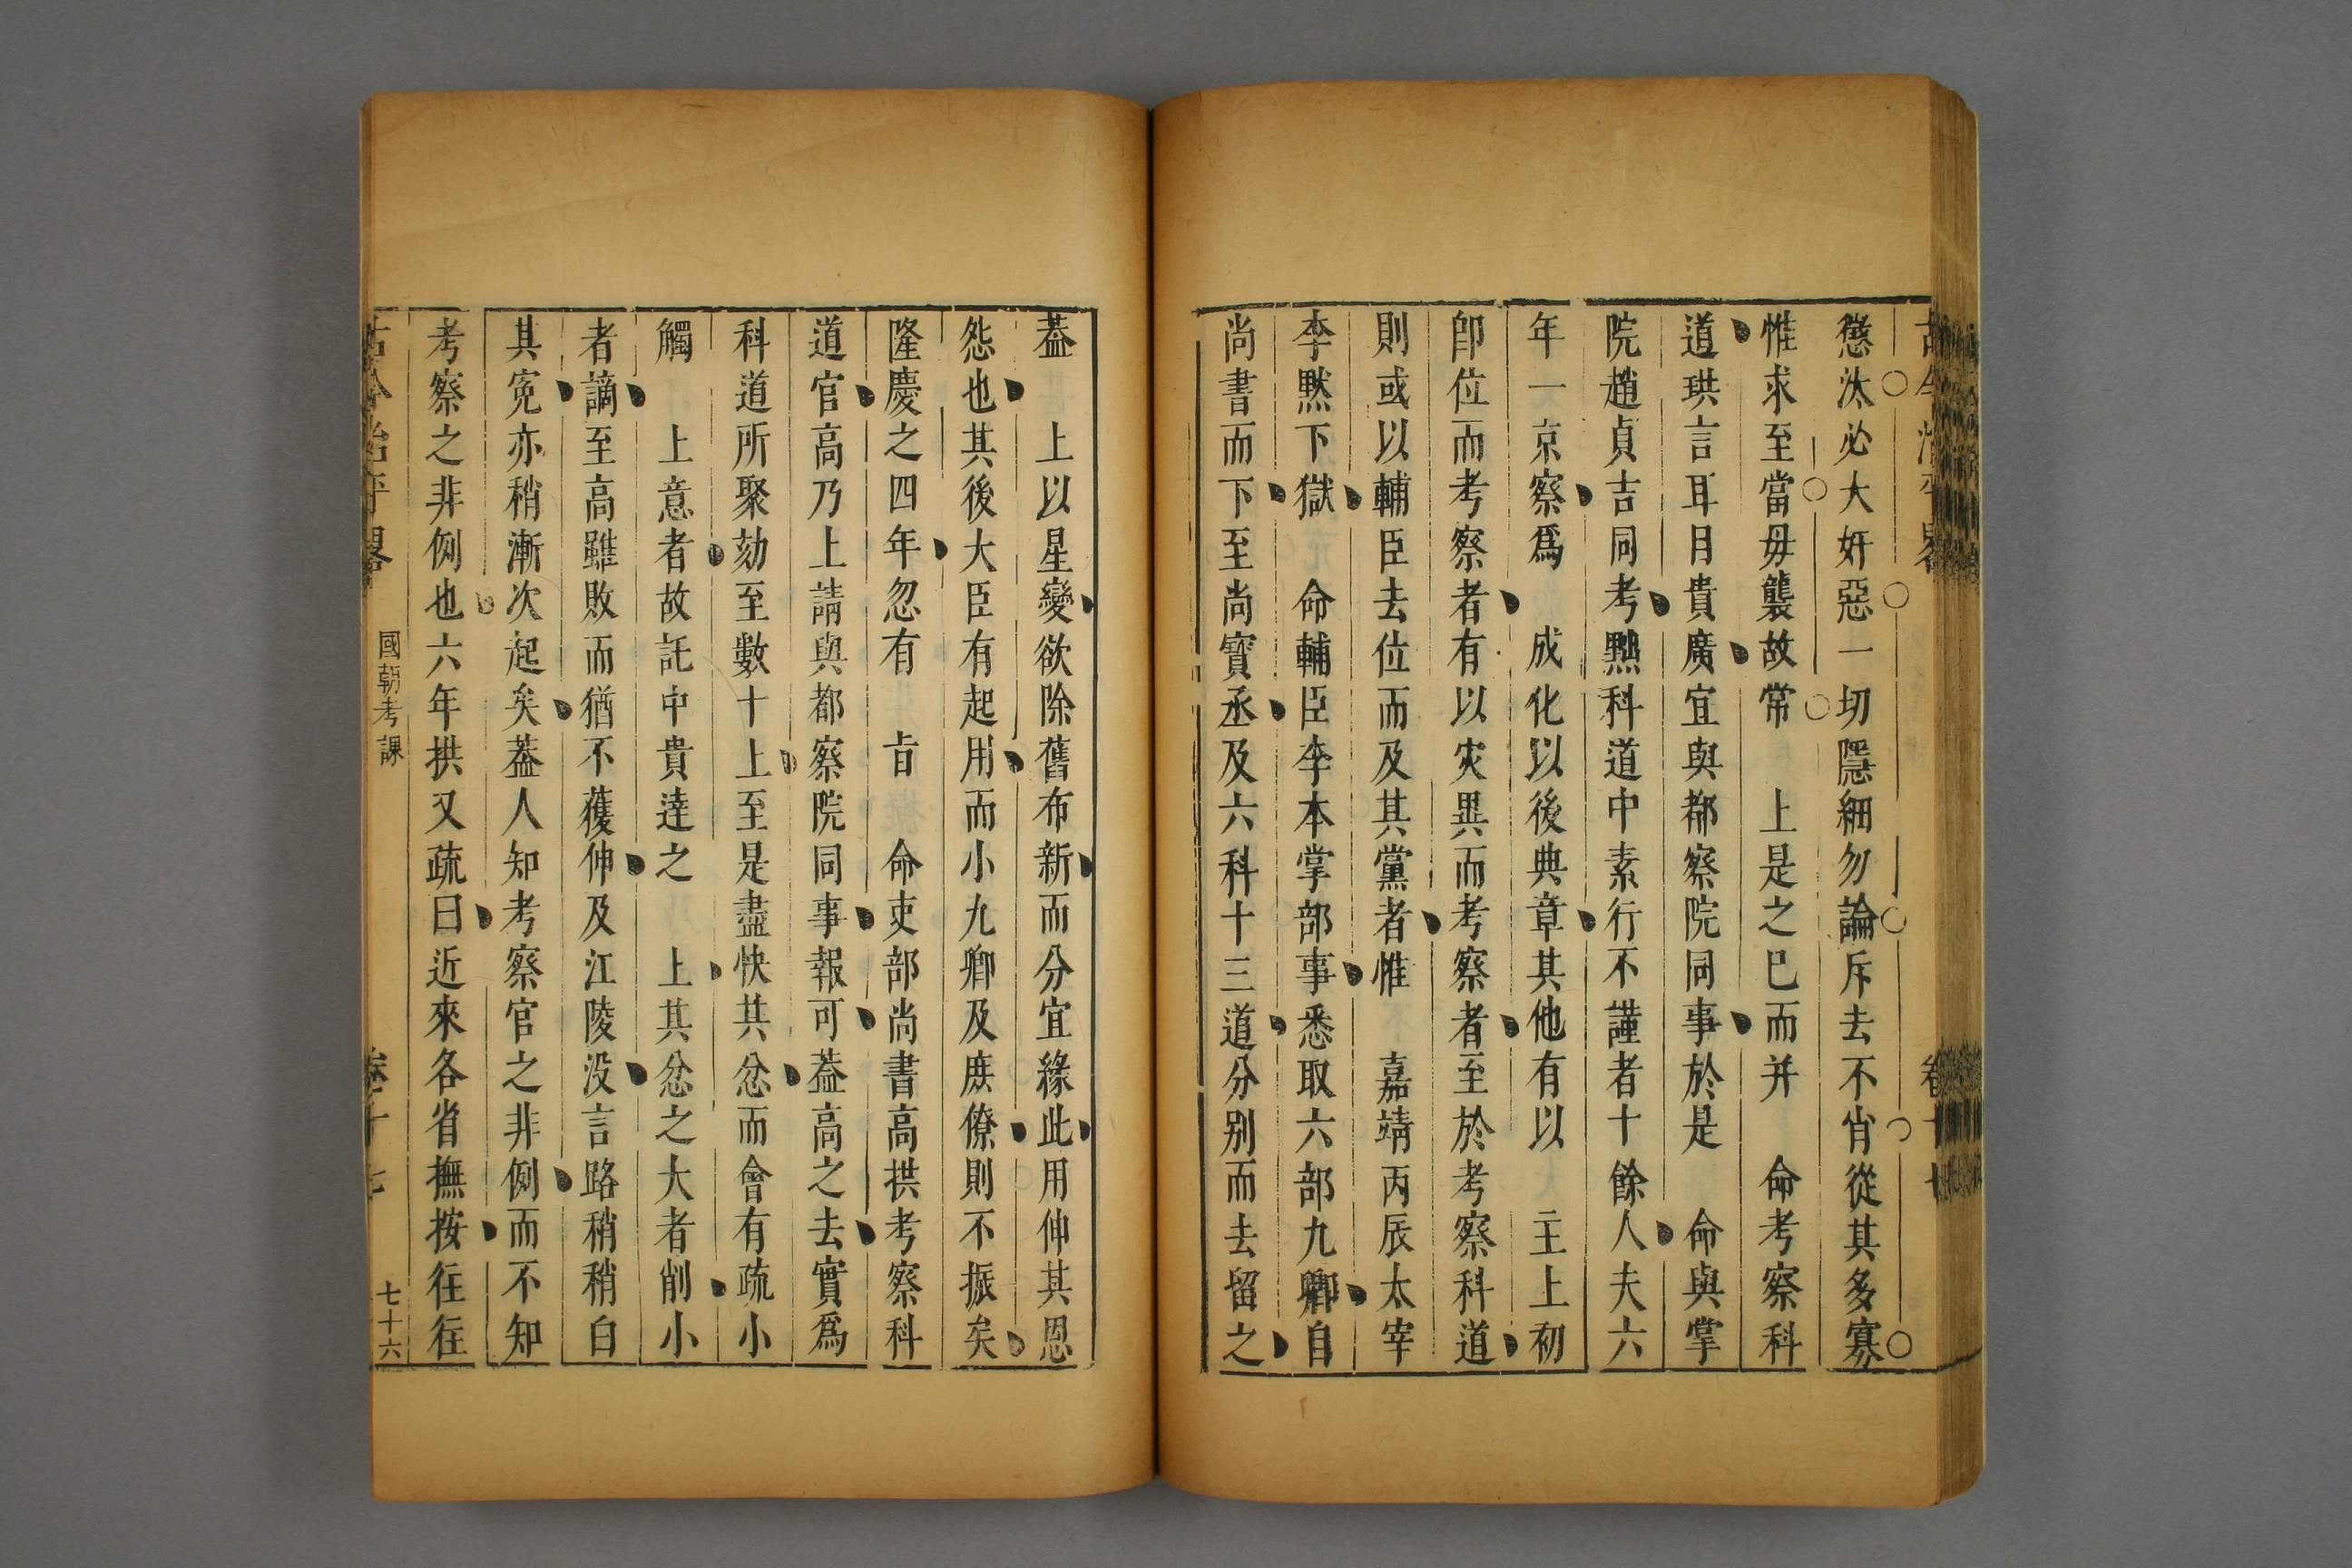 懲汰必大奸惡一切隱細勿論斥去不肖從其多寡
惟求至當毋襲故常　上是之巳而并　命考察科
道珙言耳目貴廣宜與都察院同事於是　命與掌
院趙貞吉同考黜科道中素行不謹者十餘人夫六
年一京察爲　成化以後典章其他有以　主上初
卽位而考察者有以灾異而考察者至於考察科道
則或以輔臣去位而及其黨者惟　嘉靖丙辰太宰
李默下獄　命輔臣李本掌部事悉取六部九卿自
尚書而下至尚寶丞及六科十三道分别而去留之
葢　上以星變欲除舊布新而分宜緣此用伸其恩
怨也其後大臣有起用而小九卿及庶僚則不振矣
隆慶之四年忽有　旨　命吏部尚書高拱考察科
道官高乃上請與都察院同事報可葢高之去實爲
科道所聚劾至數十上至是盡快其忿而會有疏小
觸　上意者故託中貴逹之　上其忿之大者削小
者謫至高雖敗而猶不獲伸及江陵没言路稍稍白
其寃亦稍漸次起矣葢人知考察官之非例而不知
考察之非例也六年拱又疏曰近來各省撫按往往
古今治平畧
國朝考課
卷十七
七十六